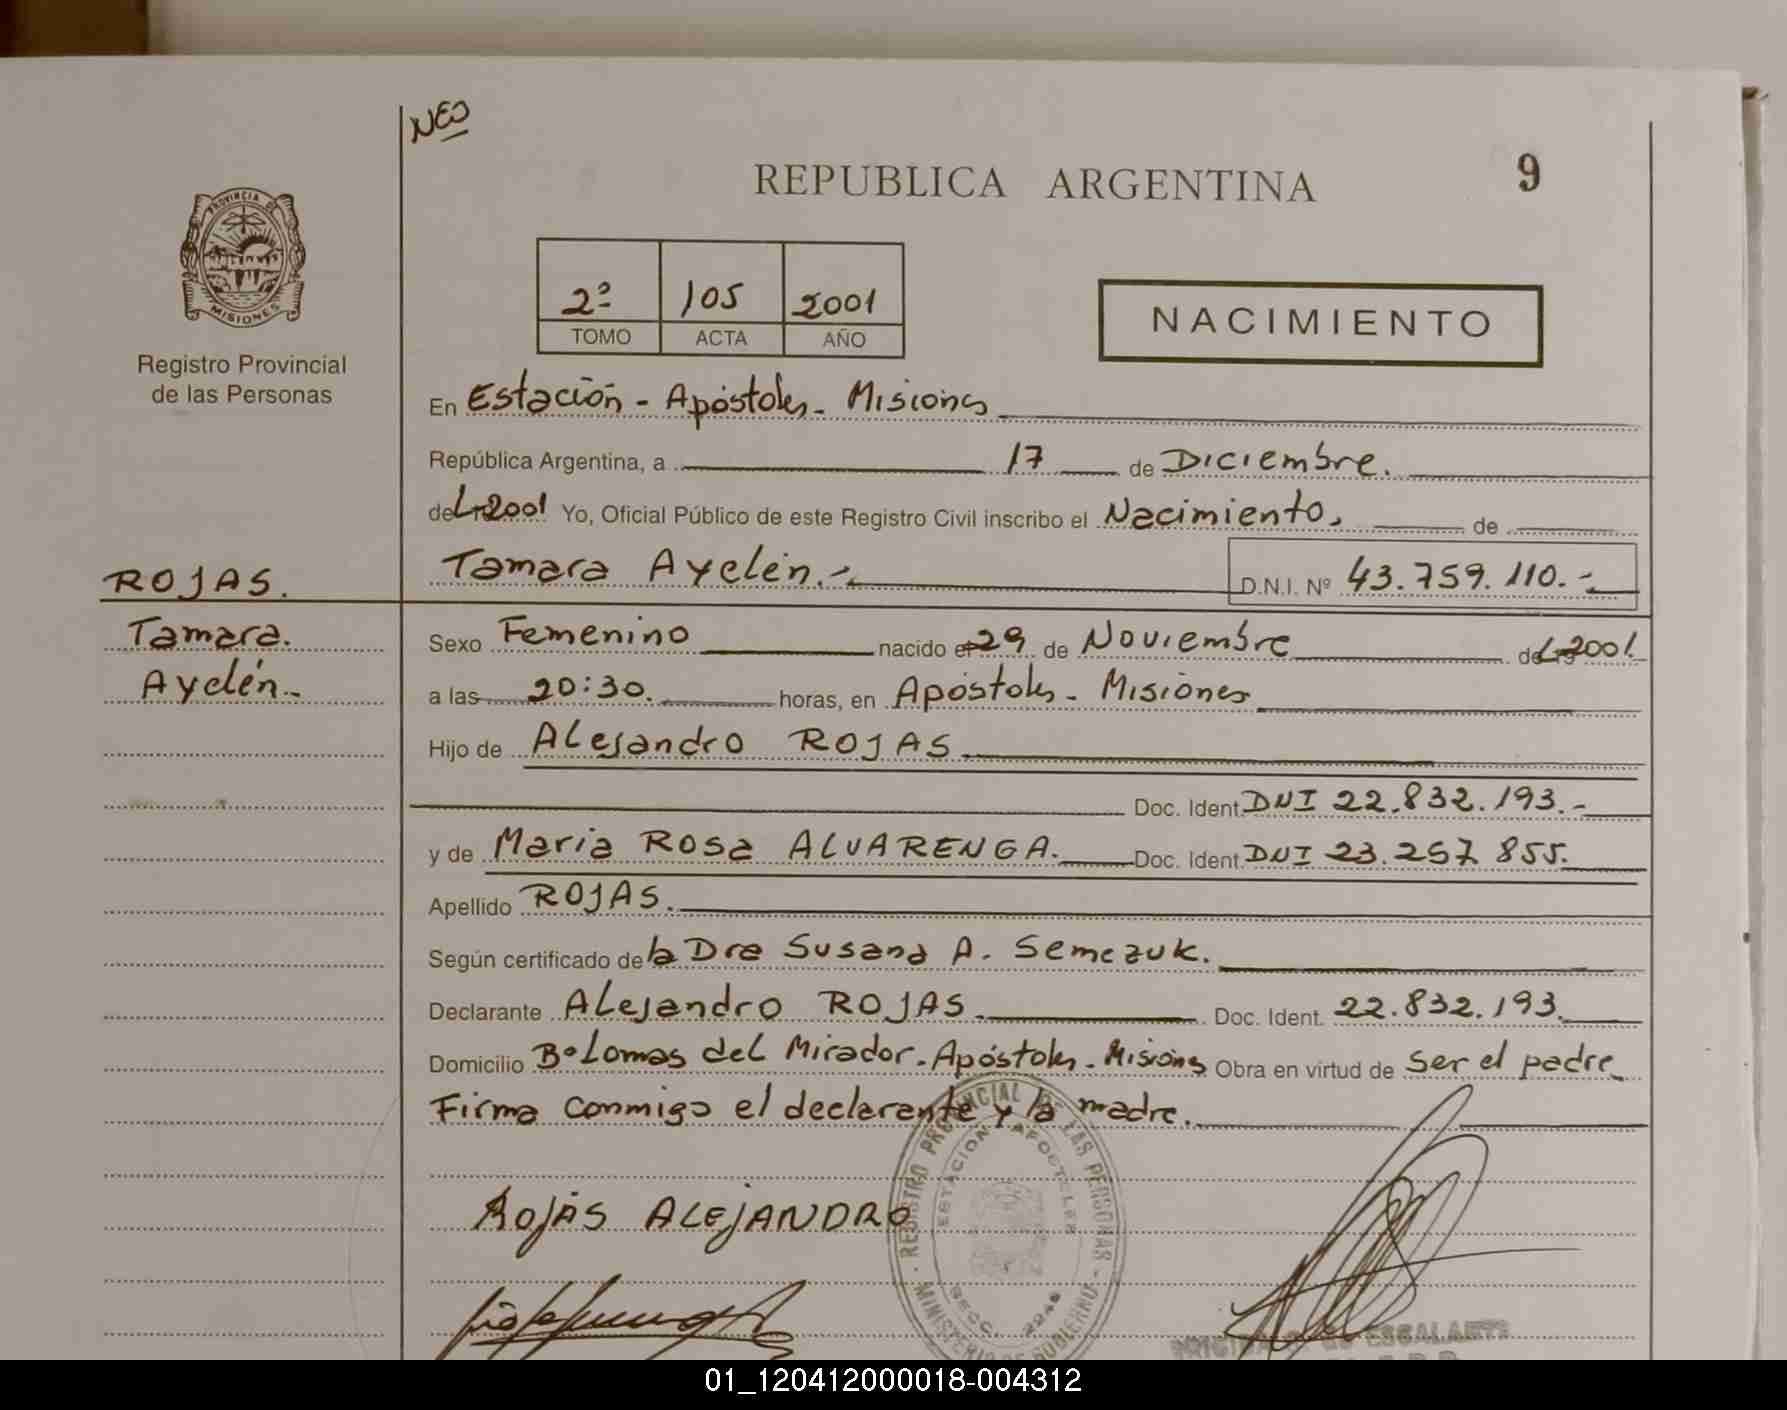 NEO
REPUBLICA ARGENTINA
9
PROVINCIA DE
MISIONES
Registro Provincial
de las Personas
2º 105 2001
TOMO ACTA AÑO
NACIMIENTO
En Estación - Apóstoles - Misiones
República Argentina, a 17 de Diciembre.
de 2001 Yo, Oficial Público de este Registro Civil inscribo el Nacimiento, de
Tamara Ayelén.- D.N.I. Nº 43.759.110.-
ROJAS.
Tamara.
Ayelén.-
Sexo Femenino nacido el 29 de Noviembre de 2001.
a las 20:30. horas, en Apóstoles - Misiones
Hijo de Alejandro ROJAS
Doc. Ident. DNI 22.832.193.-
y de Maria Rosa ALVARENGA. Doc. Ident. DNI 23.257 855.
Apellido ROJAS.
Según certificado de la Dra Susana A. Semczuk.
Declarante Alejandro ROJAS Doc. Ident. 22.832.193.
Domicilio Bº Lomas del Mirador - Apóstoles - Misiones Obra en virtud de ser el padre
Firma conmigo el declarante y la madre.
ROJAS ALEJANDRO
REGISTRO PROVINCIAL DE LAS PERSONAS - MINISTERIO DE GOBIERNO -
ESTACION APOSTOLES
SECC. 2246
ESCALANTE
01_120412000018-004312